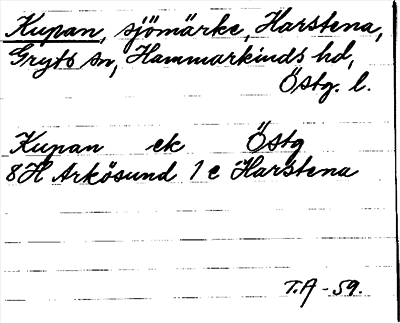 Kupan, sjömärke, Harstena,
Gryts sn, Hammarkinds hd,
Östg. l.
Kupan ek Östg
8H Arkösund 1 e Harstena
T.A - 59.